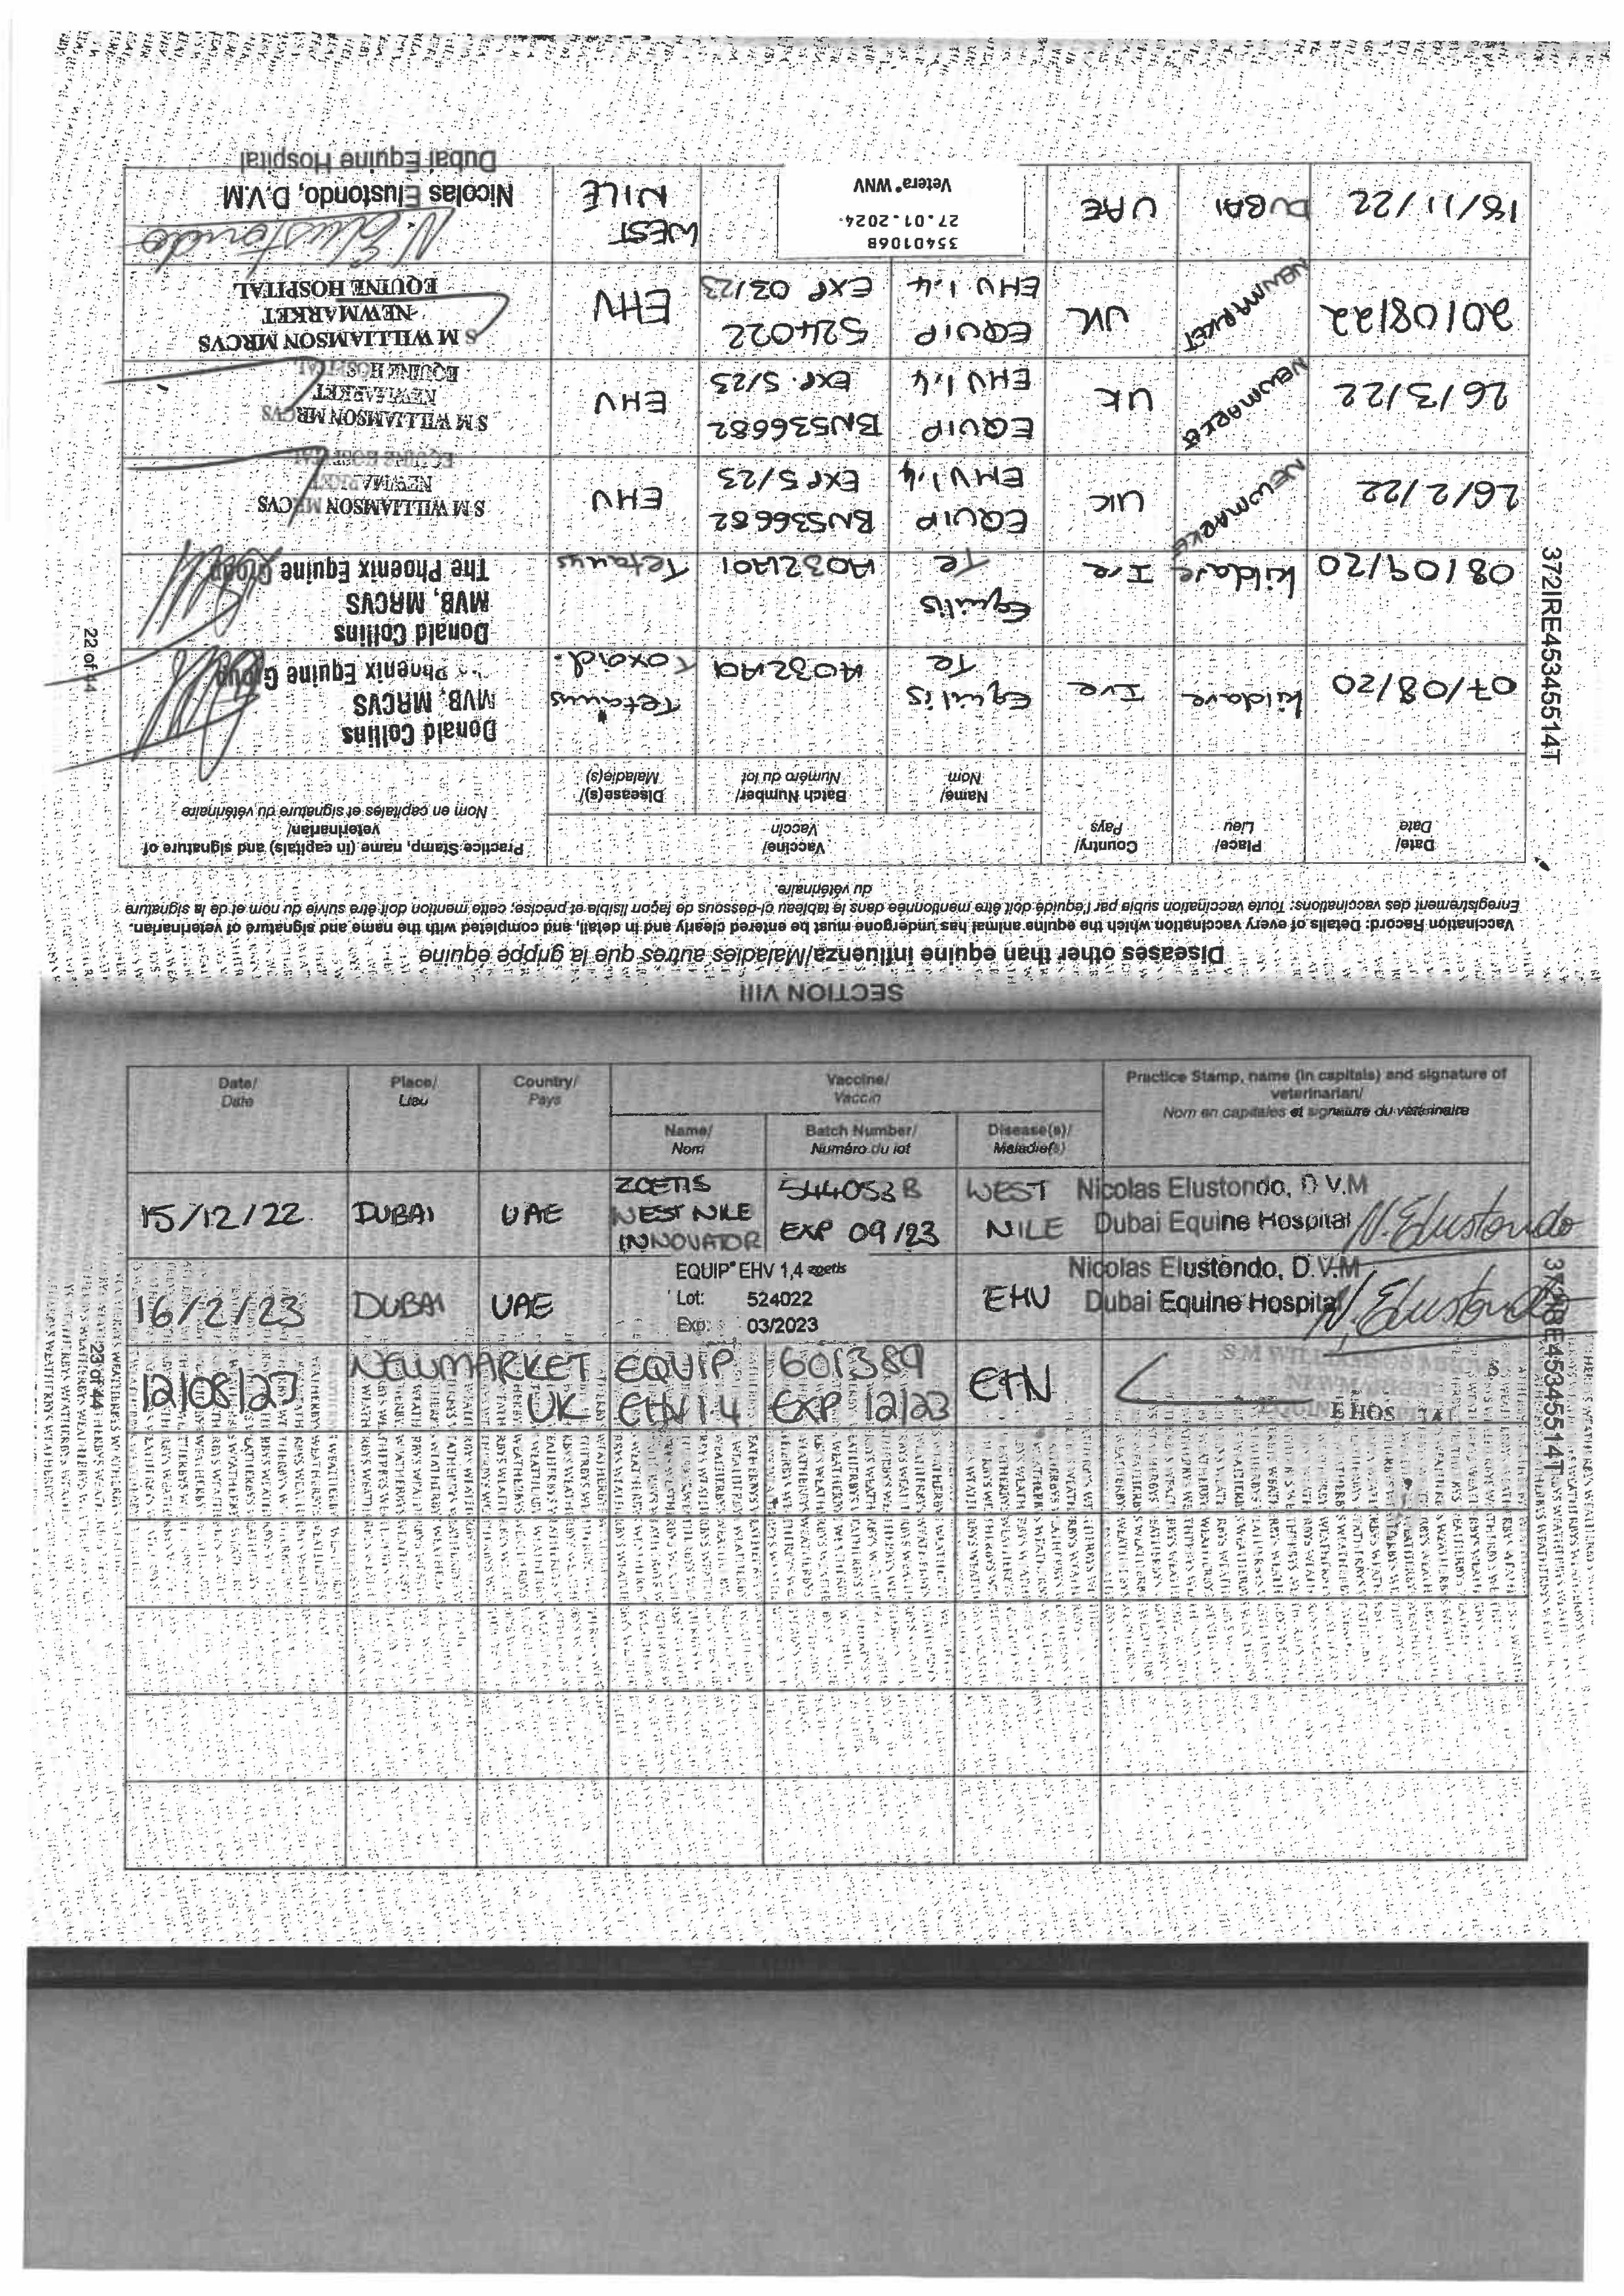 SECTION VIII
Diseases other than equine influenza/Maladies autres que la grippe équine
Vaccination Record: Details of every vaccination which the equine animal has undergone must be entered clearly and in detail, and completed with the name and signature of veterinarian.
Enregistrement des vaccinations: Toute vaccination subie par l'équidé doit être mentionnée dans le tableau ci-dessous de façon lisible et précise; cette mention doit être suivie du nom et de la signature
du vétérinaire.
Date/ Place/ Country/ Vaccine/ Practice Stamp, name (in capitals) and signature of
Date Lieu Pays Vaccin veterinarian/
Name/ Batch Number/ Disease(s)/ Nom en capitales et signature du vétérinaire
Nom Numéro du lot Maladie(s)
07/08/20 Kildare Ire Equilis Te A032A01 Tetanus Toxoid. Donald Collins
MVB, MRCVS
Phoenix Equine Group
08/09/20 Kildare Ire Equilis Te A032A01 Tetanus Donald Collins
MVB, MRCVS
The Phoenix Equine Group
26/2/22 UK EQUIP BN536682 EHV S M WILLIAMSON MRCVS
EHV 1,4 EXP 5/23 NEWMARKET
EQUINE HOSPITAL
26/3/22 UK EQUIP BN536682 EHV S M WILLIAMSON MRCVS
EHV 1,4 EXP. 5/23 NEWMARKET
EQUINE HOSPITAL
20/08/22 NEWMARKET UK EQUIP 524022 EHV S M WILLIAMSON MRCVS
EHV 1,4 EXP 03/23 NEWMARKET
EQUINE HOSPITAL
18/11/22 DUBAI UAE 3540106B WEST N. Elustondo
27.01.2024 NILE Nicolas Elustondo, D.V.M
Vetera® WNV Dubai Equine Hospital
372IRE45345514T
22 of 44
Date/ Place/ Country/ Vaccine/ Practice Stamp, name (in capitals) and signature of
Date Lieu Pays Vaccin veterinarian/
Nom en capitales et signature du vétérinaire
Name/ Batch Number/ Disease(s)/
Nom Numéro du lot Maladie(s)
15/12/22 DUBAI UAE ZOETIS 544053B WEST Nicolas Elustondo, D.V.M
WEST NILE EXP 09/23 NILE Dubai Equine Hospital N. Elustondo
INNOVATOR
16/2/23 DUBAI UAE EQUIP® EHV 1,4 zoetis EHV Nicolas Elustondo, D.V.M
Lot: 524022 Dubai Equine Hospital N. Elustondo
Exp: 03/2023
12/08/27 NEWMARKET EQUIP 601389 EHV
UK EHV 1 4 EXP 12/23 NEWMARKET
EQUINE HOSPITAL
23 of 44